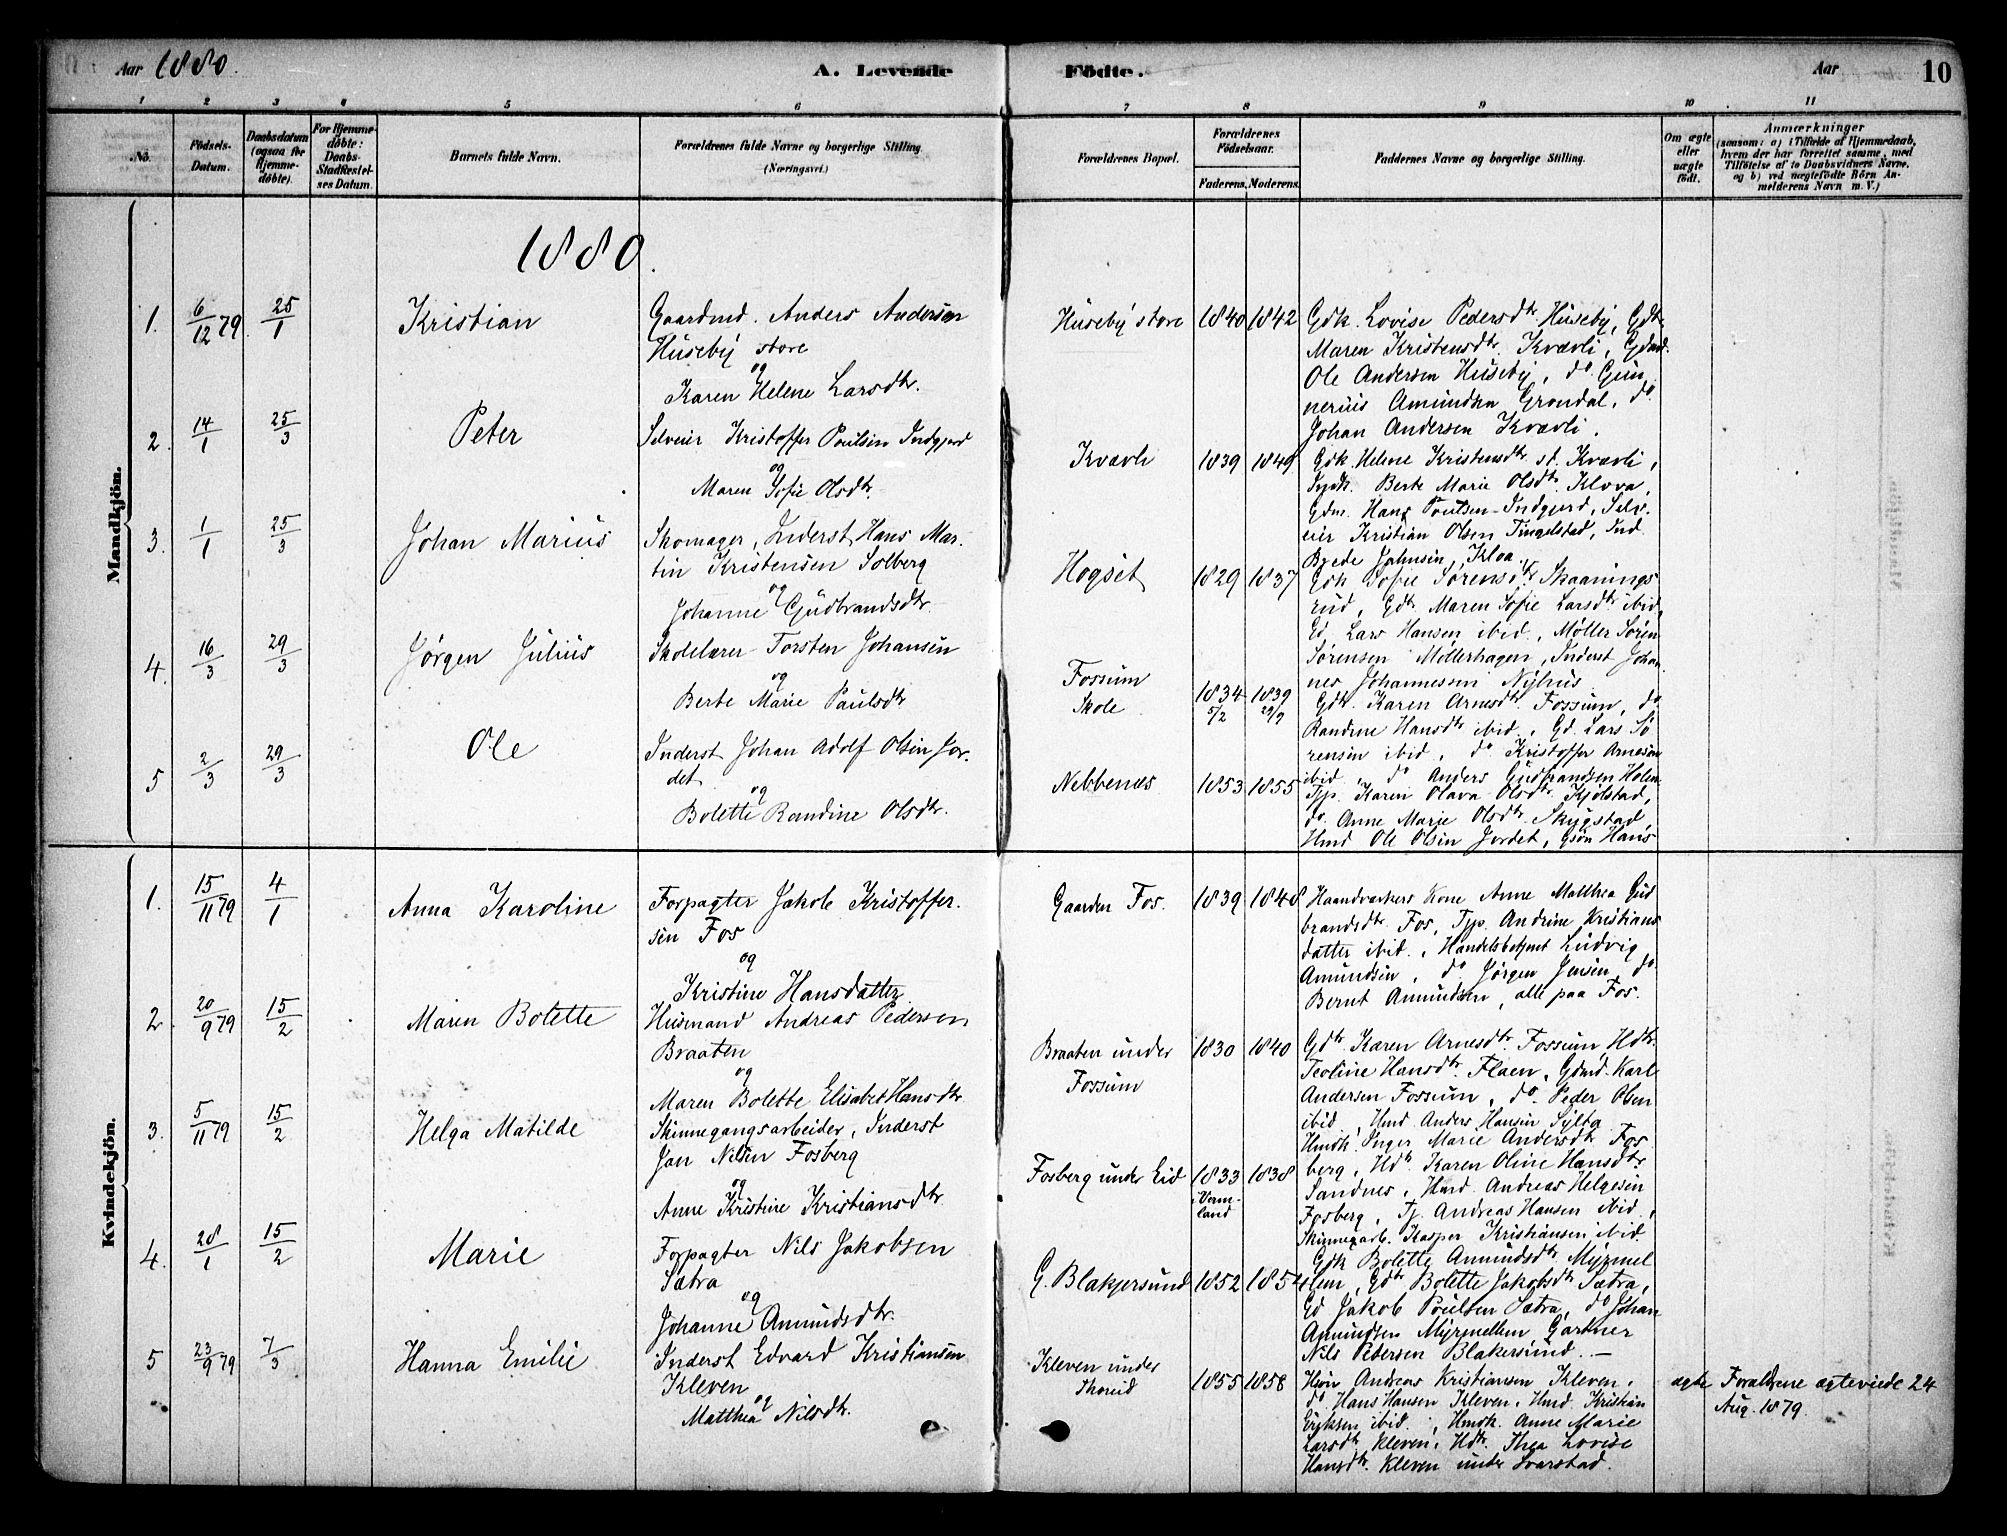 Aar 1880.
A. Levende
Födte.
Aar
10
1 2 3 4 5 6 7 8 9 10 11
No.
Födsels-
Datum.
Daabsdatum
(ogsaa for
Hjemme-
döbte).
For Hjemme-
döbte:
Daabs-
Stadfæstel-
ses Datum.
Barnets fulde Navn.
Forældrenes fulde Navne og borgerlige Stilling.
(Næringsvei.)
Forældrenes Bopæl.
Forældrenes
Födselsaar.
Faderens. Moderens.
Faddernes Navne og borgerlige Stilling.
Om ægte
eller
uægte
födt.
Anmærkninger
(saasom: a) i Tilfælde af Hjemmedaab,
hvem der har forrettet samme, med
Tilföielse af to Daabsvidners Navne,
og b) ved uægtefödte Börn An-
melderens Navn m. V.)
1880.
Mandkjön.
1. 6/12 79. 25/1
Kristian
Gaardmd. Anders Andersen
Huseby store
og
Karen Helene Larsdtr.
Huseby store
1840 1842
Gdk. Lovise Pedersdtr. Huseby, Gdtr.
Maren Kristensdtr. Kvævli, Gdmd.
Ole Andersen Huseby, do. Gun
nerius Amundsen Grøndal, do.
Johan Andersen Kvævli.
2. 14/1 25/3
Peter
Selveier Kristoffer Poulsen Indgjerd
og
Maren Sofie Olsdtr.
Kvævli
1839 1849
Gdk. Helene Kristensdtr. st. Kvævli,
Berte Marie Olsdtr. Klova,
Gdm. Hans Poulsen Indgjerd, Selv.
eier Kristian Olsen Tingelstad, Ind.
Byede Johnsen, Kloa.
3. 1/1 25/3
Johan Marius
Skomager, Inderst Hans Mar-
tin Kristensen Solberg
og
Johanne Gudbrandsdtr.
Hogset
1829 1837
Gdk Sofie Sørensdtr Skaanings
rud, Gdtr. Maren Sofie Larsdtr ibid,
Gd. Lars Hansen ibid., Møller Søren
Sørensen Møllerhagen, Inderst Johan
nes Johannessen Nyhus
4. 16/3 29/3
Jørgen Julius
Skolelærer Torsten Johansen
og
Berte Marie Paulsdtr
Fossum
Skole
1834 1839
5/2 29/9
Gdtr. Karen Arnesdtr. Fossum, do
Randine Hansdtr ibid., Gd. Lars Sø
rensen ibid., do Kristoffer Arnesen
ibid., do Anders Gudbrandsen Holen
5 2/3 29/3
Ole
Inderst Johan Adolf Olsen Jor-
det
og
Bolette Randine Olsdtr.
Nebbenes
1853 1855
Typ. Karen Olava Olsdtr. Kjølstad,
do. Anne Marie Olsdtr. Skygstad,
Hmd Ole Olsen Jordet, Gsøn Hans
Kvindekjön.
1. 15/11 79 4/1
Anna Karoline
Forpagter Jakob Kristoffer-
sen Fos
og
Kristine Hansdatter
Gaarden Fos.
1839 1848
Haandværkers Kone Anne Matthea Gud
brandsdtr. Fos, Typ. Andrine Kristians
datter ibid., Handelsbetjent Ludvig
Amundsen, do Jørgen Jensen, do
Bernt Amundsen, alle paa Fos.
2. 20/9 79 15/2
Maren Bolette
Husmand Andreas Pedersen
Braaten
og
Maren Bolette Elisabet Hansdtr.
Braaten under
Fossum
1830 1840
Gdtr. Karen Arnesdtr. Fossum, Hdtr.
Teoline Hansdtr. Flaen, Gdmd. Karl
Andersen Fossum, do. Peder Olsen
ibid, Hmd Anders Hansen Sylta
3. 5/11 79 15/2
Helga Matilde
Skinnegangsarbeider, Inderst
Jan Nilsen Fosberg
og
Anne Kristine Kristiansdtr.
Fosberg under Eid
1833 1838
Verm-
land
Hmdk. Inger Marie Andersdtr Fos
berg, Hdtr. Karen Oline Hansdtr.
Sandnes, Hmd. Andreas Helgesen
Fosberg, Tj. Andreas Hansen ibid.,
Skinnegarb. Kasper Kristiansen ibid
4. 28/1 15/2
Marie
Forpagter Nils Jakobsen
Sætra
og
Johanne Amundsdtr.
G. Blakjersund
1852 1854
Gdk Bolette Amundsdtr. Myrmel
len, Gdtr Bolette Jakobsdtr Sætra,
Gd Jakob Poulsen Sætra, do Johan
Amundsen Myrmellen, Gartner
Nils Pedersen Blakersund. —
5 23/9 79 7/3
Hanna Emilie
Inderst Edvard Kristiansen
Kleven
og
Matthea Nilsdtr.
Kleven under
Thorud
1855 1858
Hsøn Andreas Kristiansen Kleven,
do Hans Hansen Kleven, Hmd. Kristian
Eriksen ibid., Hmdk. Anne Marie
Larsdtr. Kleven, Hdtr. Thea Lovise
Hansdtr. Kleven under Svarstad.
ægte
Forældrene ægteviede 24
Aug. 1879.